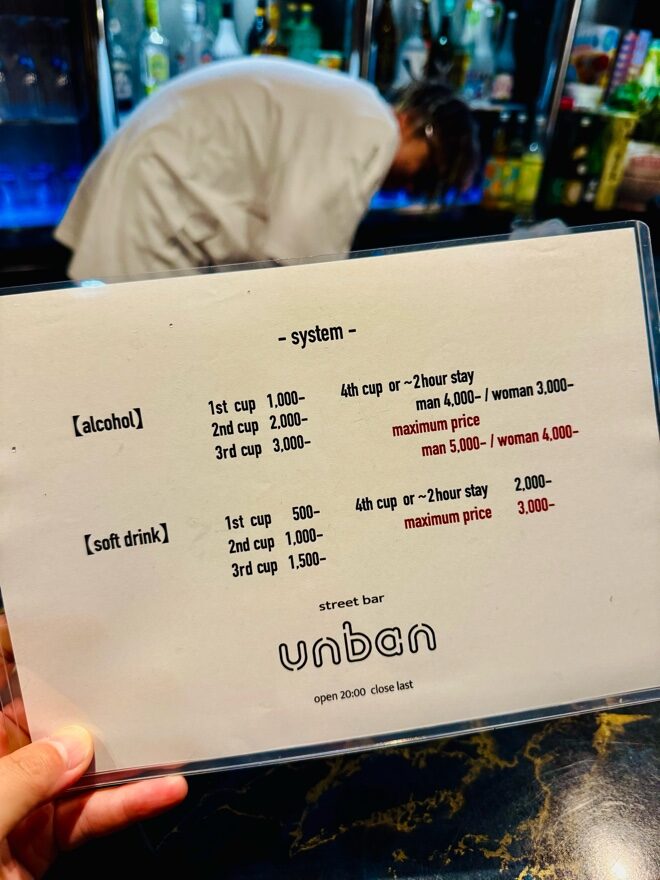 - system -
【alcohol】
1st cup 1,000-
2nd cup 2,000-
3rd cup 3,000-
4th cup or ~2hour stay
man 4,000- / woman 3,000-
maximum price
man 5,000- / woman 4,000-
【soft drink】
1st cup 500-
2nd cup 1,000-
3rd cup 1,500-
4th cup or ~2hour stay 2,000-
maximum price 3,000-
street bar
unban
open 20:00 close last